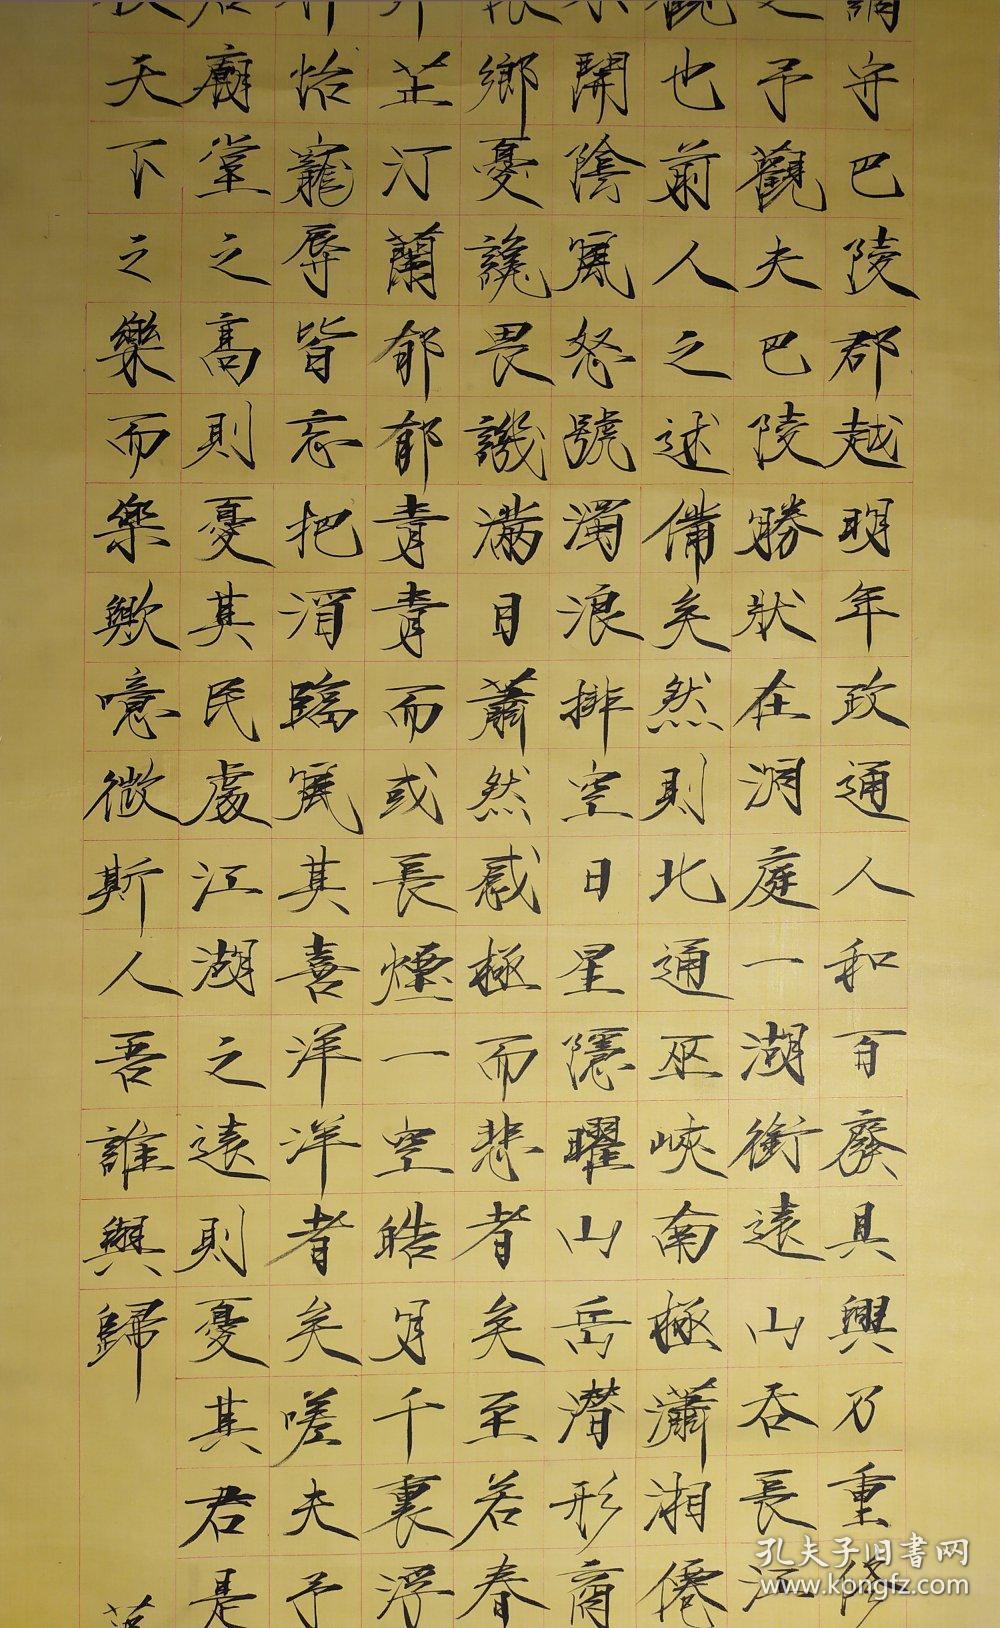 謫守巴陵郡越明年政通人和百廢具興乃重修
之予觀夫巴陵勝狀在洞庭一湖銜遠山吞長江
觀也前人之述備矣然則北通巫峽南極瀟湘僊
開陰風怒號濁浪排空日星隱曜山岳潛形商
鄉憂讒畏譏滿目蕭然感極而悲者矣至若春
芷汀蘭郁郁青青而或長煙一空皓月千裏浮
怡寵辱皆忘把酒臨風其喜洋洋者矣嗟夫予
廟堂之高則憂其民處江湖之遠則憂其君是
天下之樂而樂歟噫微斯人吾誰與歸
孔夫子旧書网
www.kongfz.com